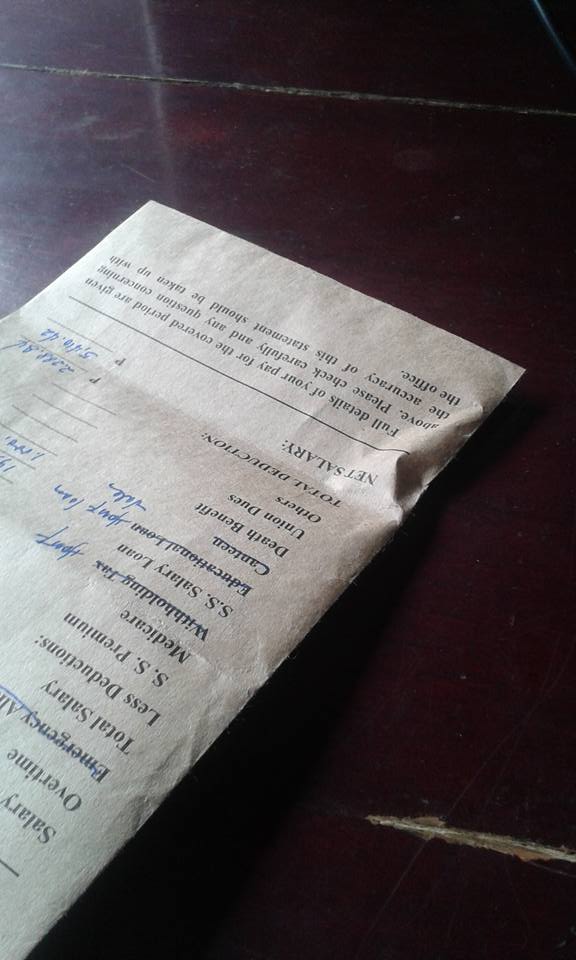 Salary
Overtime
Emergency All
Total Salary
Less Deductions:
S. S. Premium
Medicare
Withholding Tax
S.S. Salary Loan
Educational Loan
Canteen
Death Benefit
Union Dues
Others
TOTAL DEDUCTION: P
NET SALARY: P
Full details of your pay for the covered period are given
above. Please check carefully and any question concerning
the accuracy of this statement should be taken up with
the office.